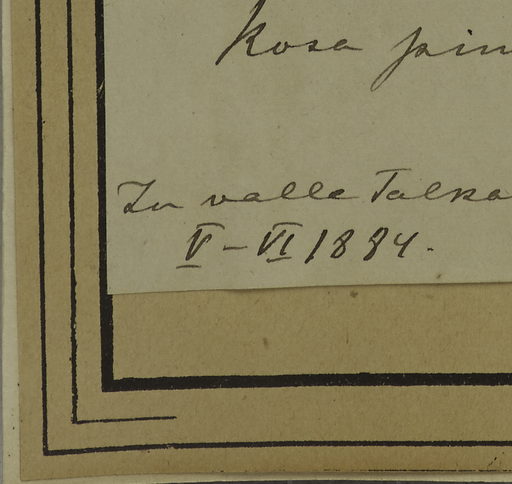 Rosa pin
In valle Talka
V – VI 1884.